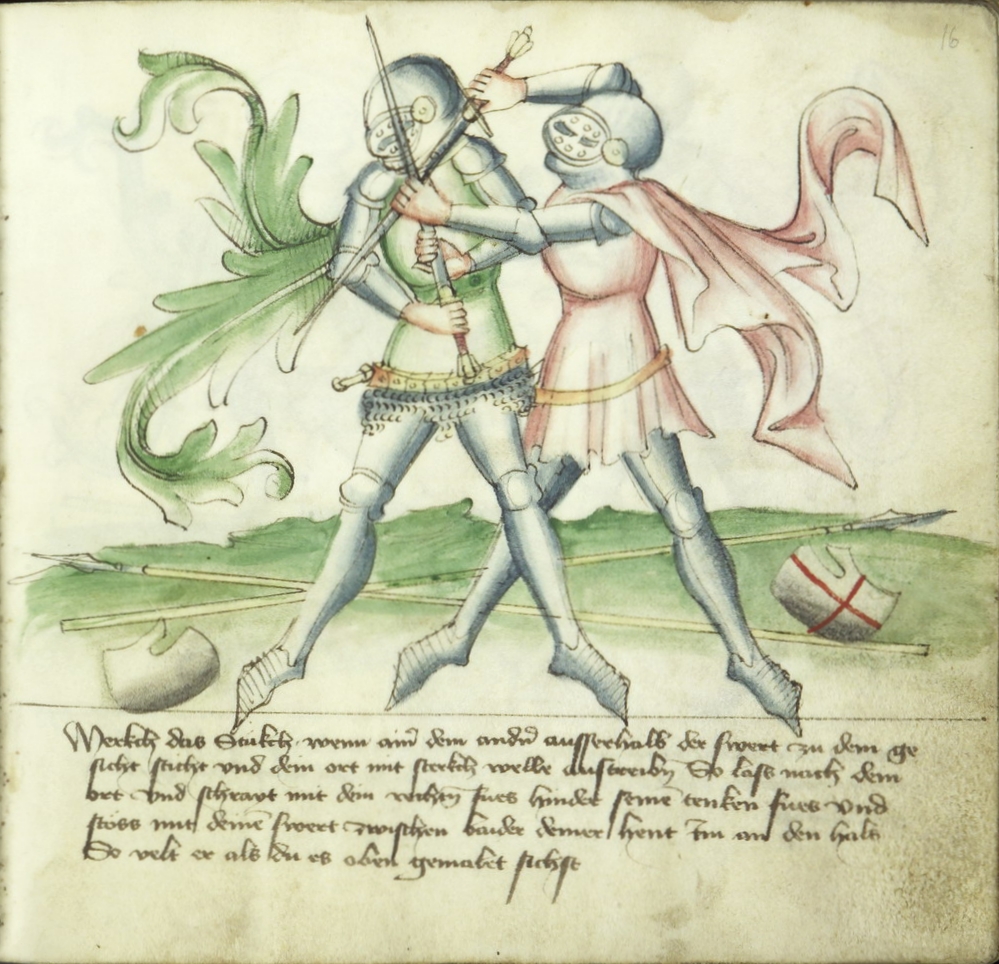 16
Merkch das Stukch wenn ainr dem andn̄ ausserhalb der swert zu dem ge
sicht sticht vnd dein ort mit sterkch welle austreibn̄ So lass nach dem
ort vnd schreyt mit dem rechtn̄ fues hinder seinē tenken fues vnd
stöss mit deinē swert zwischen baider deiner hent Im an den hals
So velt er als du es oben gemalet sichst